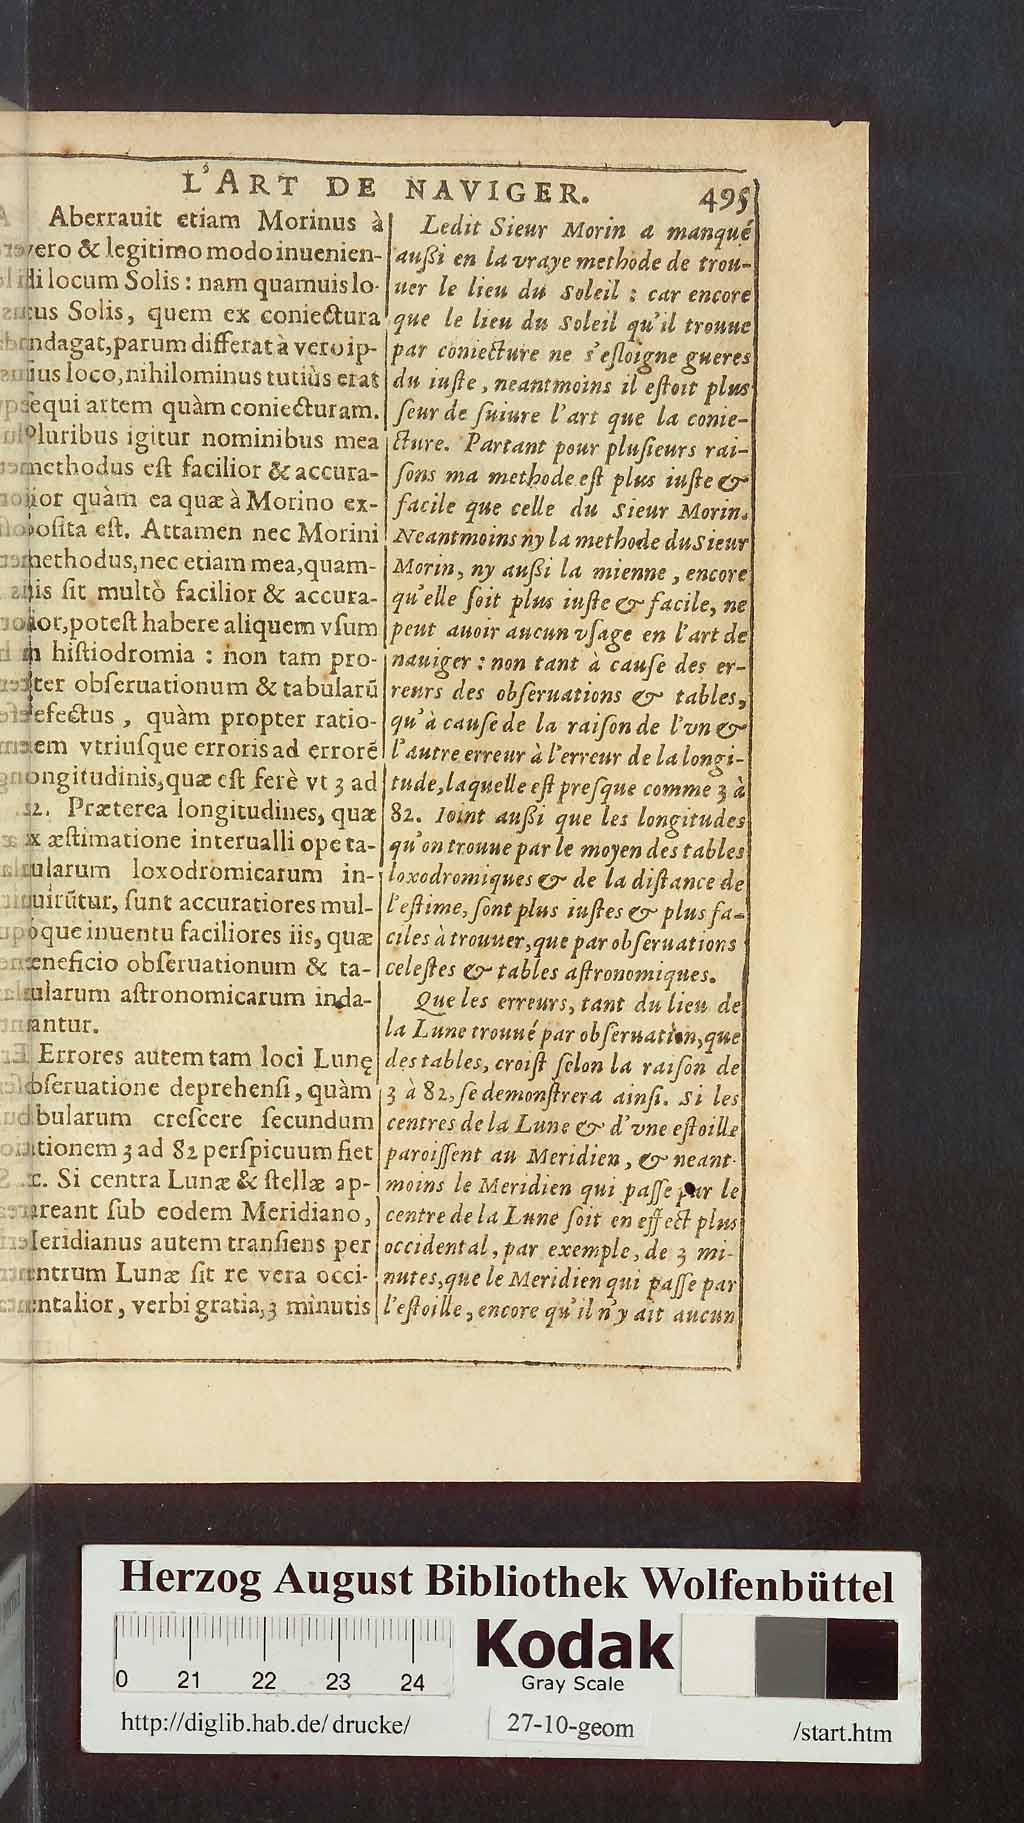 L'ART DE NAVIGER. 495
Aberrauit etiam Morinus à
vero & legitimo modo inuenien-
di locum Solis : nam quamuis lo-
cus Solis, quem ex coniectura
indagat, parum differat à vero ip-
sius loco, nihilominus tutiùs erat
sequi artem quàm coniecturam.
Pluribus igitur nominibus mea
methodus est facilior & accura-
tior quàm ea quæ à Morino ex-
posita est. Attamen nec Morini
methodus, nec etiam mea, quam-
uis sit multò facilior & accura-
tior, potest habere aliquem vsum
in histiodromia : non tam pro-
pter obseruationum & tabularū
defectus, quàm propter ratio-
nem vtriusque erroris ad errorē
longitudinis, quæ est ferè vt 3 ad
82. Præterea longitudines, quæ
ex æstimatione interualli ope ta-
bularum loxodromicarum in-
quirūtur, sunt accuratiores mul-
tóque inuentu faciliores iis, quæ
beneficio obseruationum & ta-
bularum astronomicarum inda-
gantur.
Errores autem tam loci Lunę
obseruatione deprehensi, quàm
tabularum crescere secundum
rationem 3 ad 82 perspicuum fiet
sic. Si centra Lunæ & stellæ ap-
pareant sub eodem Meridiano,
Meridianus autem transiens per
centrum Lunæ sit re vera occi-
dentalior, verbi gratia, 3 minutis
Ledit Sieur Morin a manqué
aussi en la vraye methode de trou-
uer le lieu du Soleil : car encore
que le lieu du Soleil qu'il trouue
par coniecture ne s'esloigne gueres
du iuste, neantmoins il estoit plus
seur de suiure l'art que la conie-
cture. Partant pour plusieurs rai-
sons ma methode est plus iuste &
facile que celle du Sieur Morin.
Neantmoins ny la methode du Sieur
Morin, ny aussi la mienne, encore
qu'elle soit plus iuste & facile, ne
peut auoir aucun vsage en l'art de
nauiger : non tant à cause des er-
reurs des obseruations & tables,
qu'à cause de la raison de l'vn &
l'autre erreur à l'erreur de la longi-
tude, laquelle est presque comme 3 à
82. Ioint aussi que les longitudes
qu'on trouue par le moyen des tables
loxodromiques & de la distance de
l'estime, sont plus iustes & plus fa-
ciles à trouuer, que par obseruations
celestes & tables astronomiques.
Que les erreurs, tant du lieu de
la Lune trouué par obseruation, que
des tables, croist selon la raison de
3 à 82, se demonstrera ainsi. Si les
centres de la Lune & d'vne estoille
paroissent au Meridien, & neant-
moins le Meridien qui passe par le
centre de la Lune soit en effect plus
occidental, par exemple, de 3 mi-
nutes, que le Meridien qui passe par
l'estoille, encore qu'il n'y ait aucun
Herzog August Bibliothek Wolfenbüttel
0 21 22 23 24
Kodak
Gray Scale
http://diglib.hab.de/drucke/ 27-10-geom /start.htm